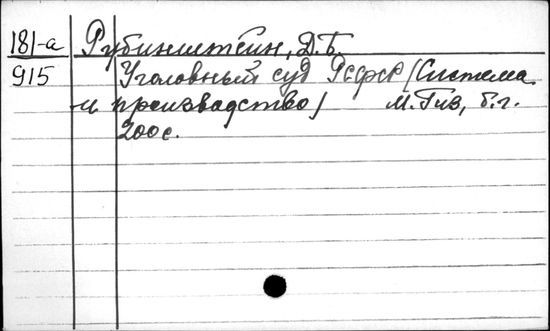 181-а Рубинштейн, Д.Б.
915 Уголовный суд РСФСР (Система
и производство) М. Гиз, б.г.
200 с.